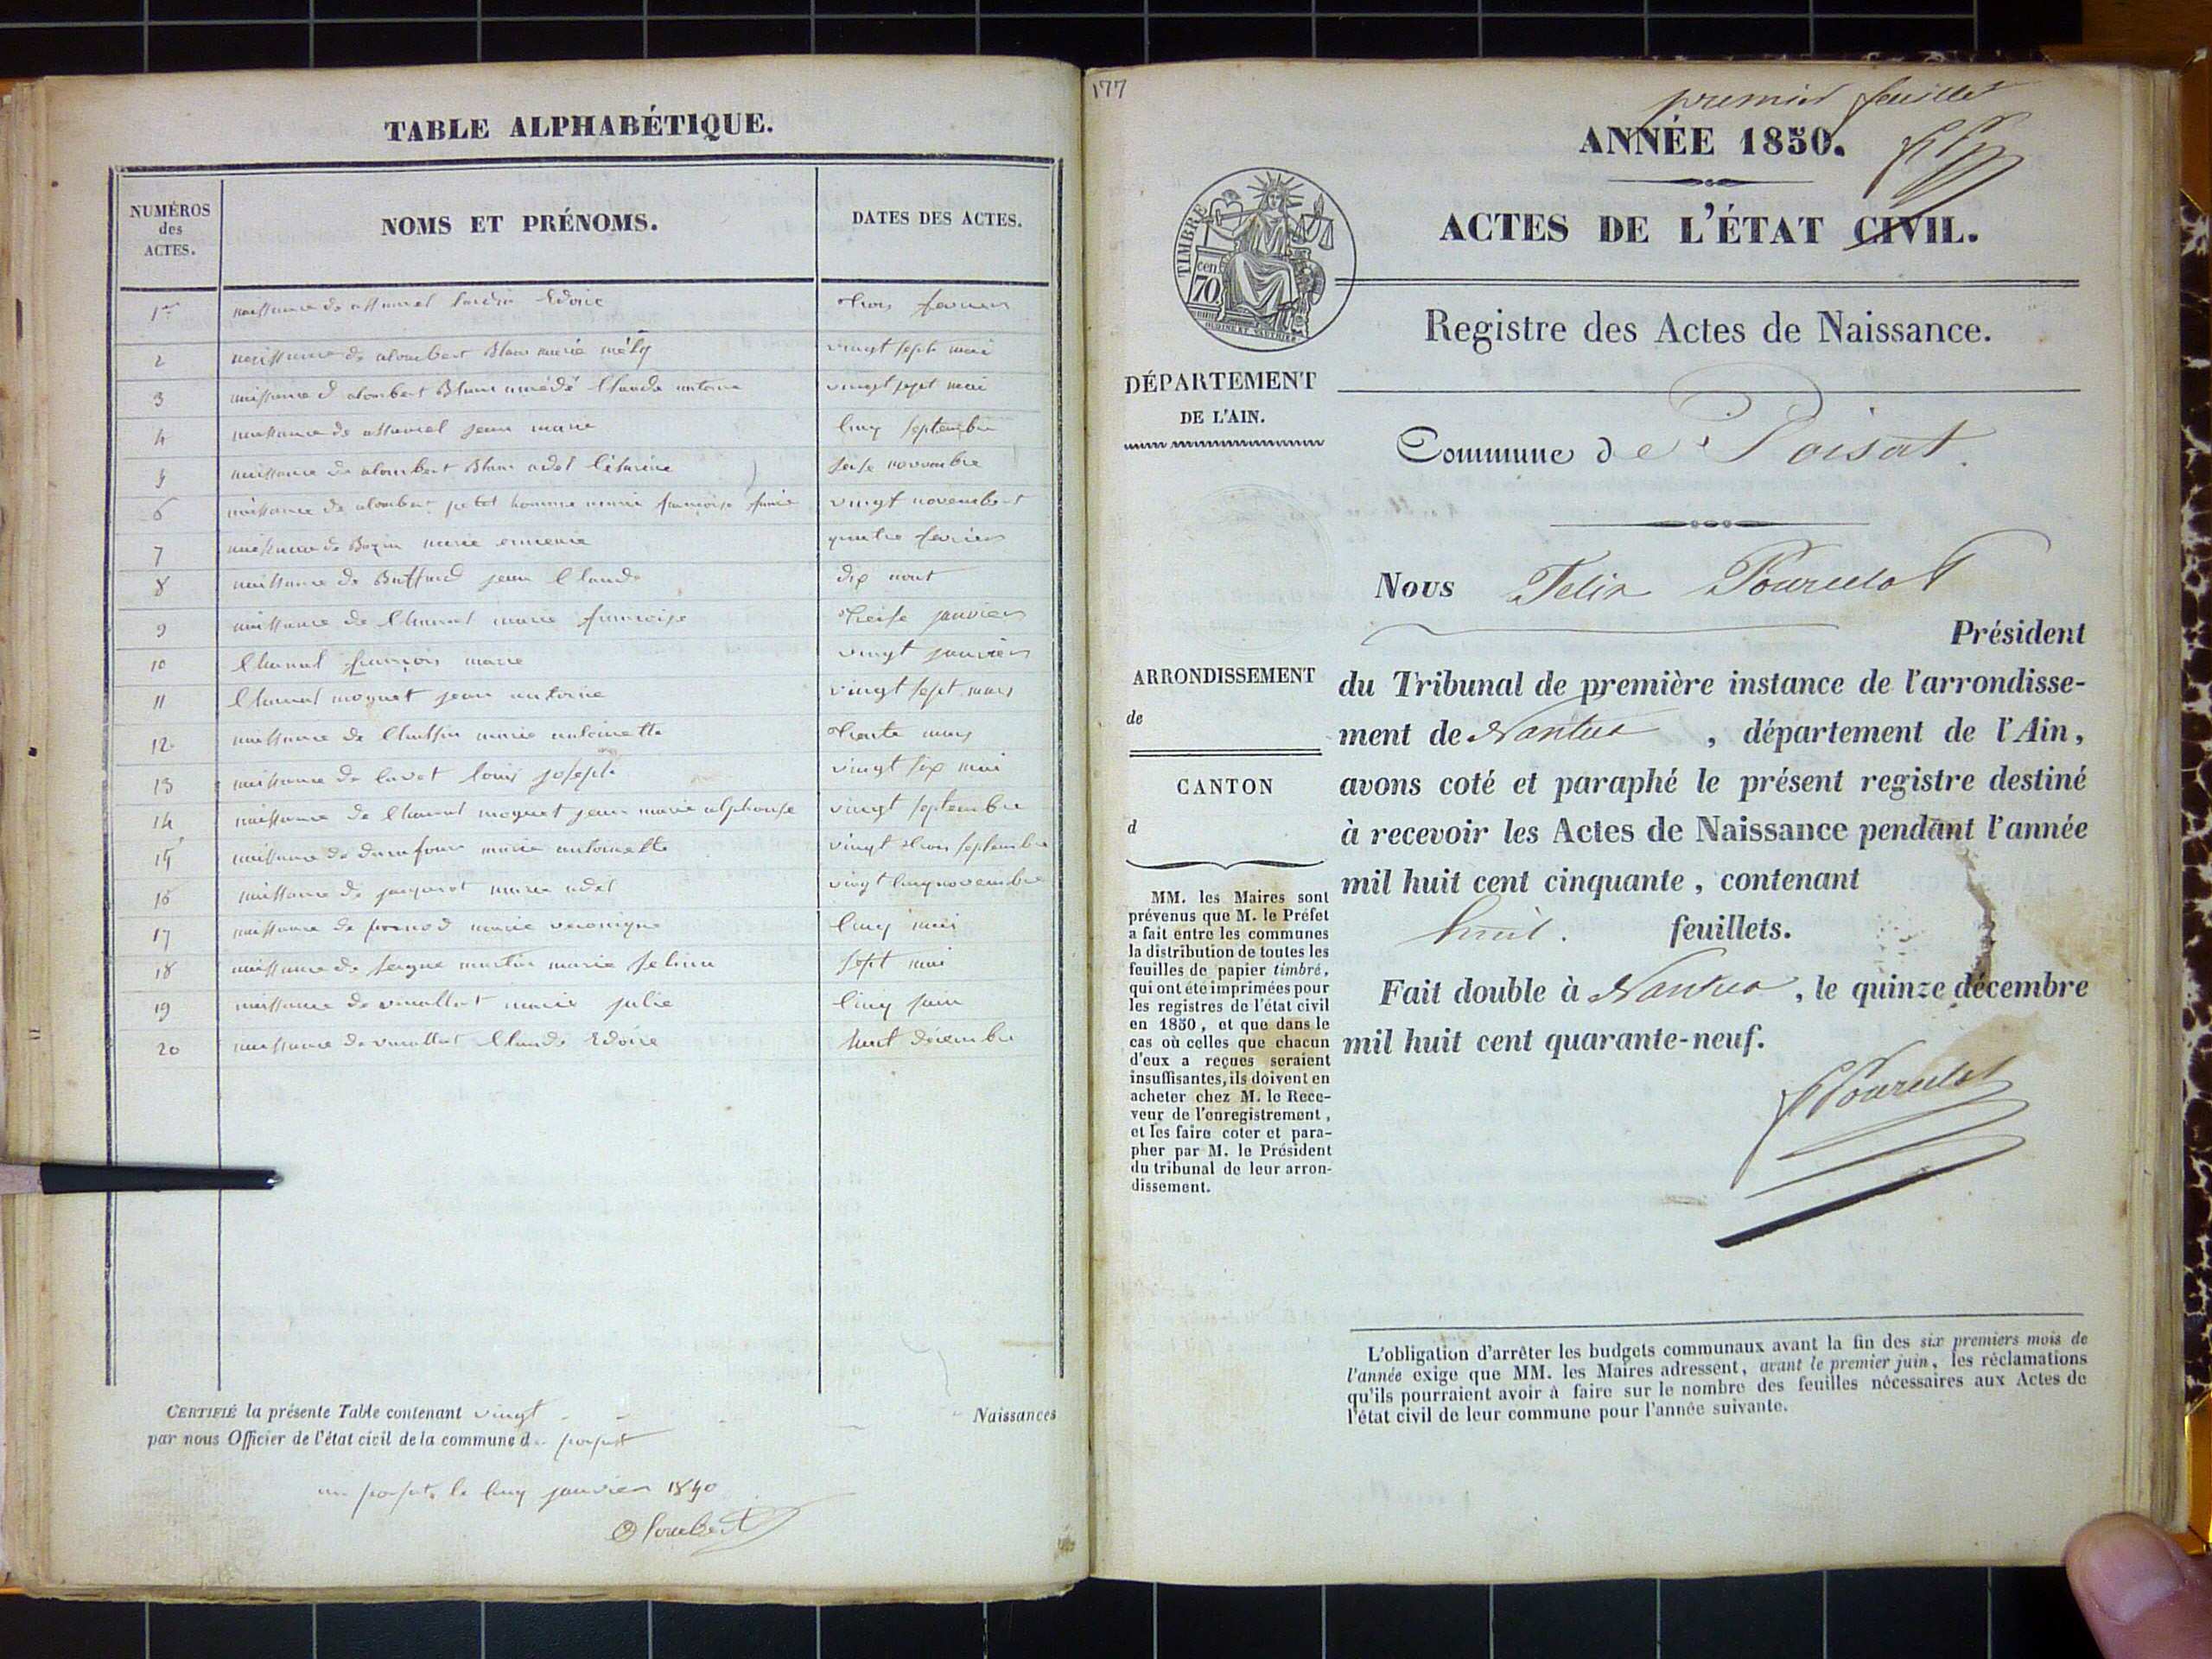 TABLE ALPHABÉTIQUE.
NUMÉROS
des
ACTES.
NOMS ET PRÉNOMS.
DATES DES ACTES.
1er naissance de trois
2 naissance de alombert Blanc marie mély vingt sept mai
3 naissance d alombert Blanc amédé Claude antoine vingt sept mai
4 naissance de jean marie Cinq septembre
5 naissance de alombert Blanc adel seise novembre
6 naissance de alombert petet homme marie françoise vingt novembert
7 naissance de Bozon marie quatre
8 naissance de Buffard jean Claude dix aout
9 naissance de Chanal marie françoise treise janvier
10 Chanal françois marie vingt janvier
11 Chanal moguet jean antoine vingt sept mars
12 naissance de marie antoinette trente mars
13 naissance de Cavet louis joseph vingt six mai
14 naissance de Chanal moguet jean marie alphonse vingt septembre
15 naissance de durafour marie antoinette vingt trois septembre
16 naissance de marie adel vingt Cinq novembre
17 naissance de marie veronique Cinq mai
18 naissance de martin marie sept mai
19 naissance de vuaillat marie julie Cinq juin
20 naissance de vuaillat Claude Edoire huit décembre
CERTIFIÉ la présente Table contenant vingt Naissances
par nous Officier de l'état civil de la commune d
le Cinq janvier 18
177
premier feuillet
ANNÉE 1850.
ACTES DE L'ÉTAT CIVIL.
TIMBRE
70 cen
Registre des Actes de Naissance.
DÉPARTEMENT
DE L'AIN.
Commune de Poisat.
Nous Felix Pourcelot
Président
ARRONDISSEMENT
de
du Tribunal de première instance de l'arrondisse-
ment de Nantua, département de l'Ain,
CANTON
d
avons coté et paraphé le présent registre destiné
à recevoir les Actes de Naissance pendant l'année
mil huit cent cinquante, contenant
huit. feuillets.
Fait double à Nantua, le quinze décembre
mil huit cent quarante-neuf.
FPourcelot
MM. les Maires sont
prévenus que M. le Préfet
a fait entre les communes
la distribution de toutes les
feuilles de papier timbré,
qui ont été imprimées pour
les registres de l'état civil
en 1850, et que dans le
cas où celles que chacun
d'eux a reçues seraient
insuffisantes, ils doivent en
acheter chez M. le Rece-
veur de l'enregistrement,
et les faire coter et para-
pher par M. le Président
du tribunal de leur arron-
dissement.
L'obligation d'arrêter les budgets communaux avant la fin des six premiers mois de
l'année exige que MM. les Maires adressent, avant le premier juin, les réclamations
qu'ils pourraient avoir à faire sur le nombre des feuilles nécessaires aux Actes de
l'état civil de leur commune pour l'année suivante.